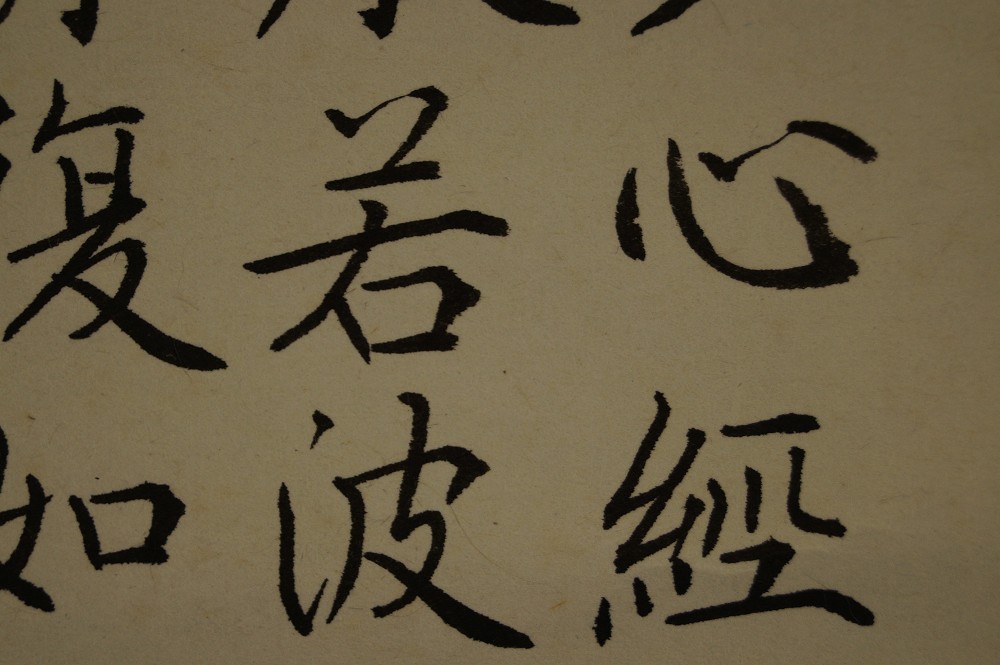 心經
若波
復如